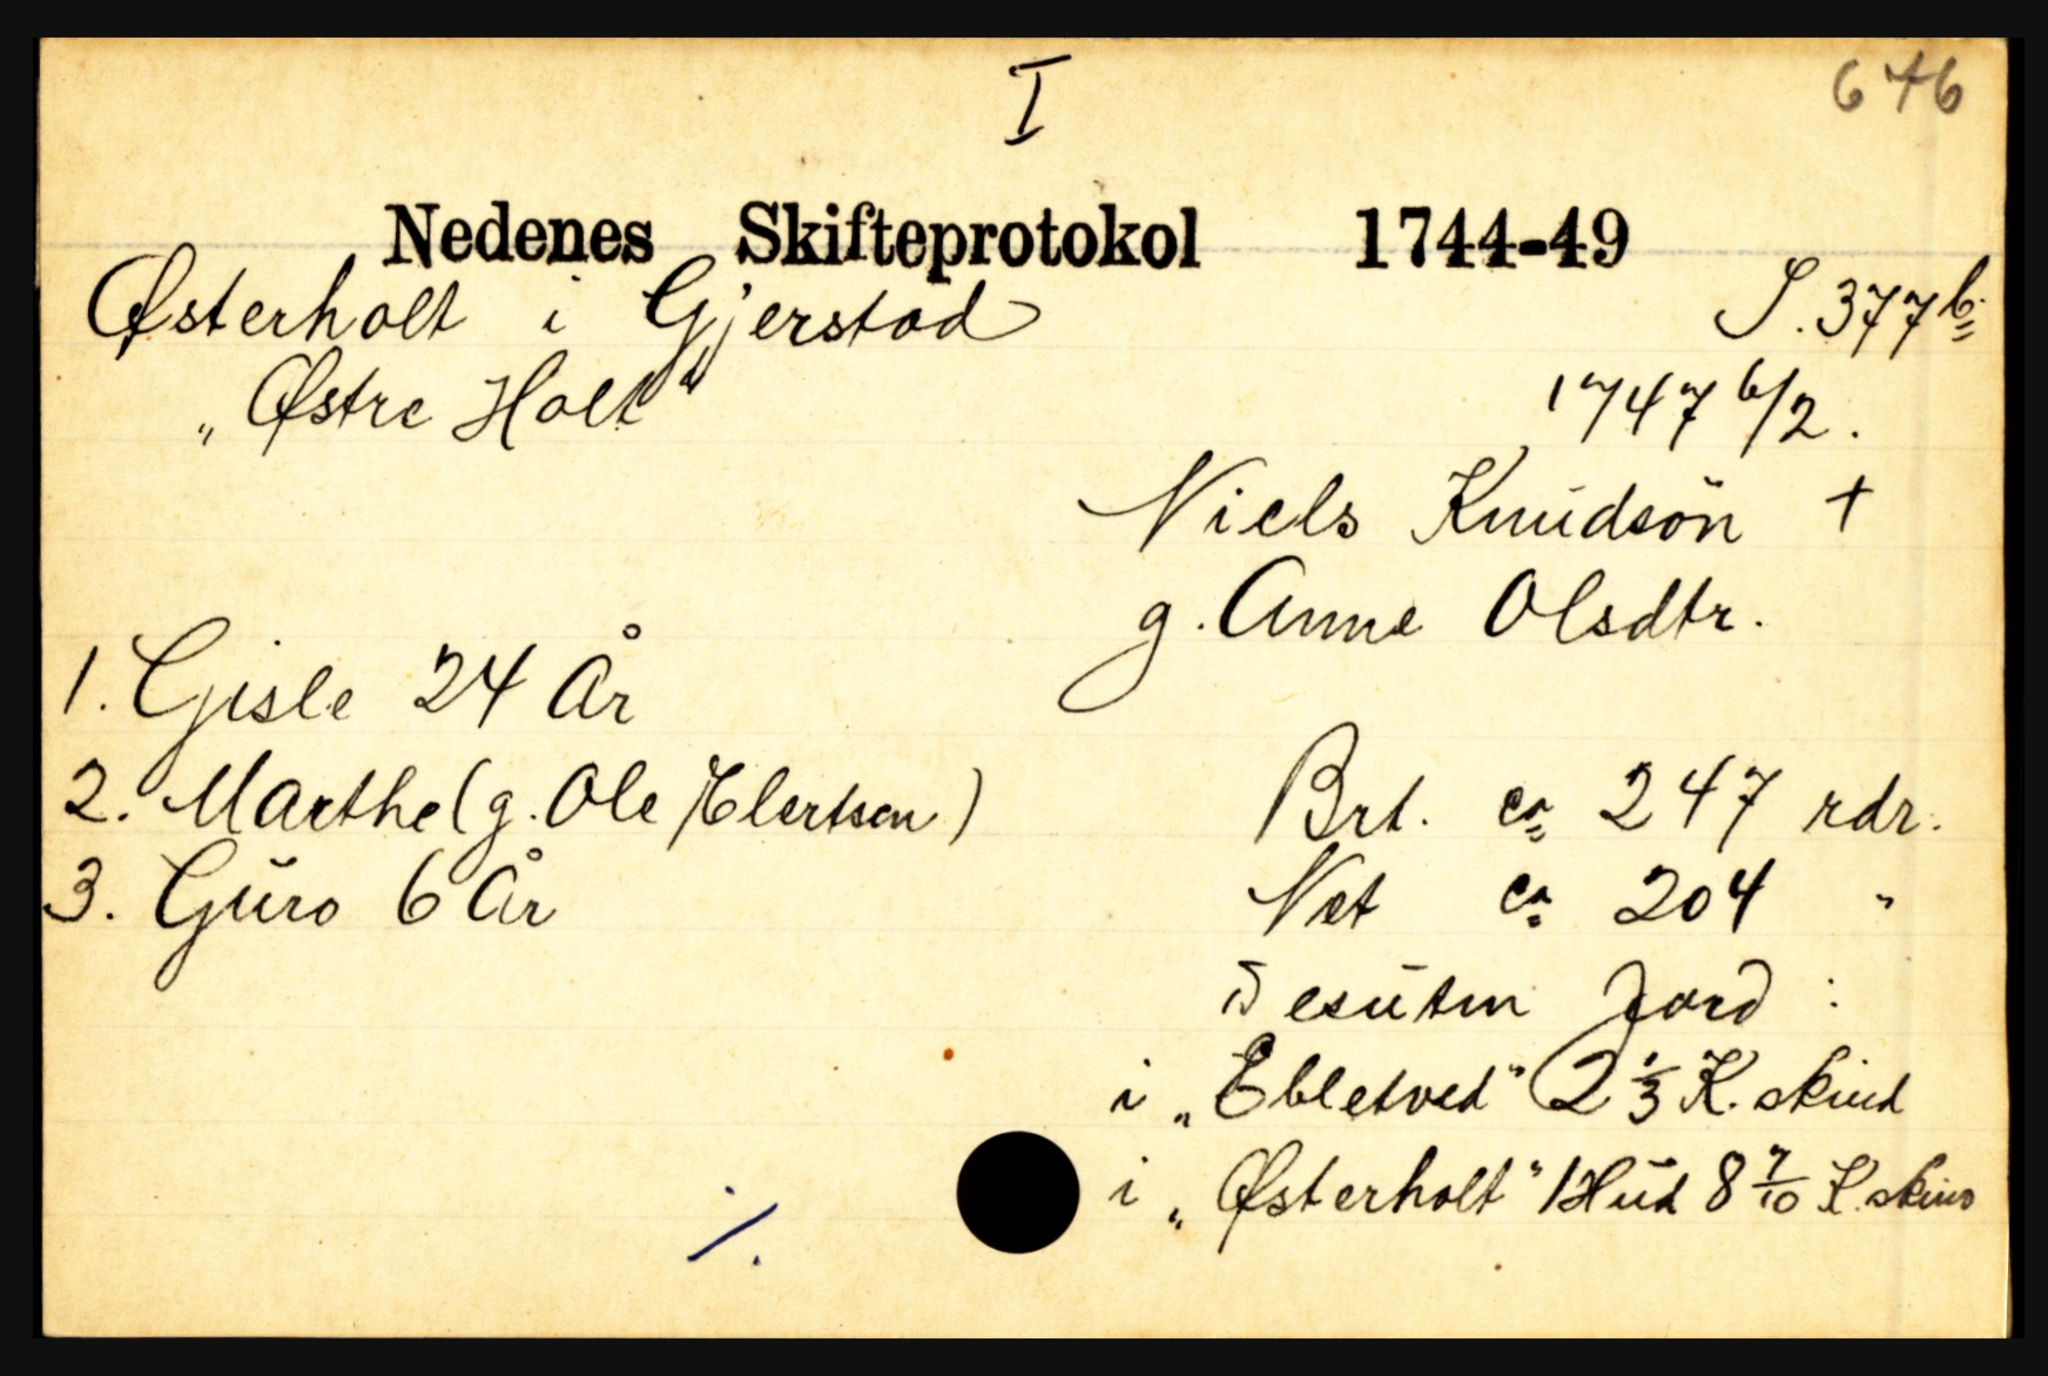 I
646
Nedenes Skifteprotokol 1744-49
Østerholt i Gjerstad
S. 377b.
„Østre Holt"
1747 6/2.
Niels Knudsön +
g. Anne Olsdtr.
1. Gisle 24 År
2. Marthe (g. Ole Elertsen)
Brt. ca 247 rdr.
3. Guro 6 År
Net ca 204 "
Desuten Jord :
i „Ebletved" 2 1/3 K. skind
i „Østerholt" 1 Hud 8 7/10 K. skind
⁒